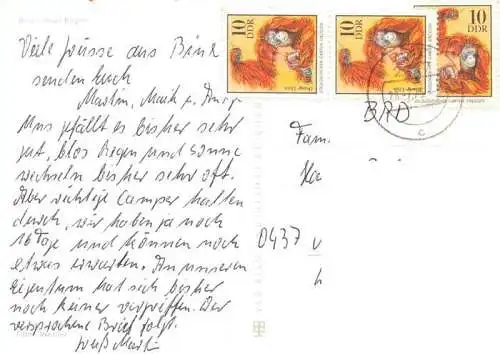 Viele Grüsse aus Binz
senden Euch
Martin, Maik u.
Uns gefällt es bisher sehr
gut, blos Regen und Sonne
wechseln bisher sehr oft.
Aber richtige Camper halten
durch, wir haben ja noch
16 Tage und können noch
etwas erwarten. An unseren
Eigentum hat sich bisher
noch keiner vergriffen. Der
versprochene Brief folgt.
Martin
10
DDR
10
DDR
10
DDR
BRD
Fam.
0437